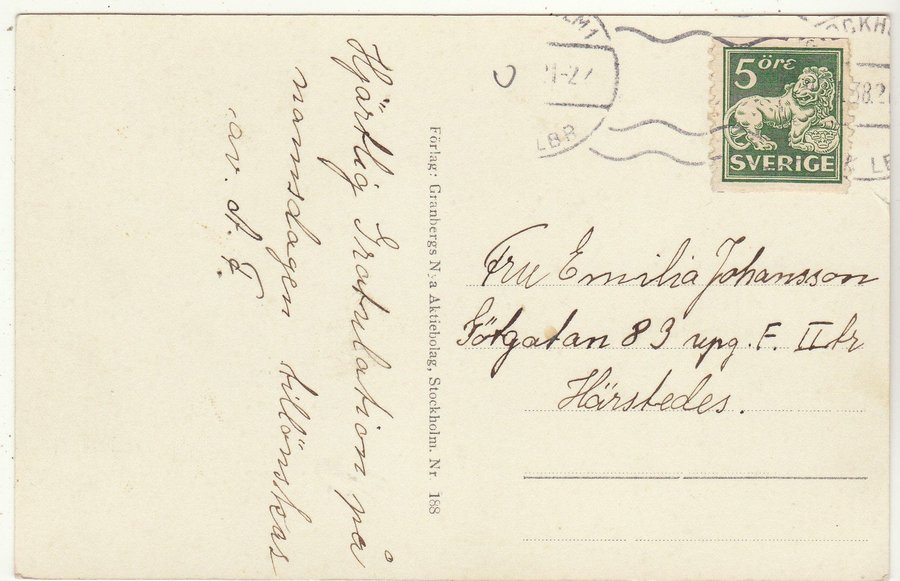 Hjärtlig Gratulation på
namnsdagen tillönskas
av. A. F.
Förlag: Granbergs Nya Aktiebolag, Stockholm. Nr 188
5 öre
SVERIGE
LBR
Fru Emilia Johansson
Götgatan 83 upg. F. II tr
Härstedes.